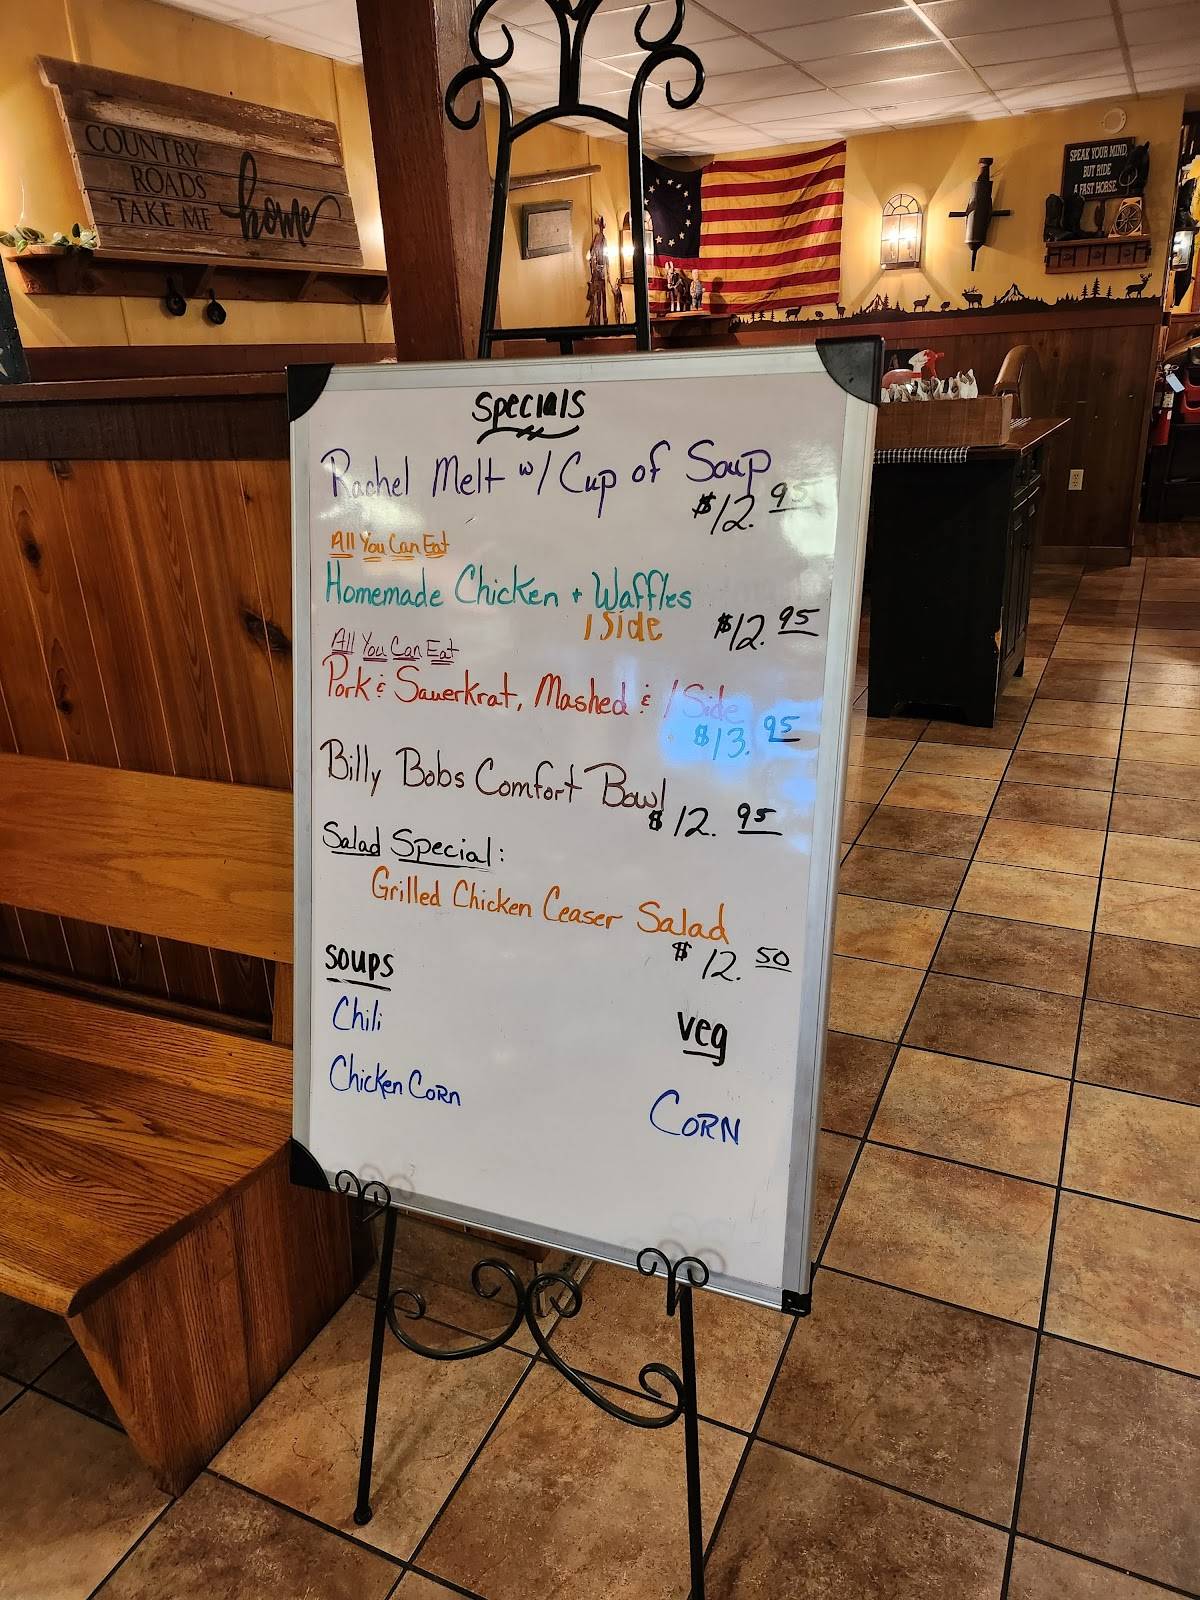 COUNTRY
ROADS
TAKE ME
home
SPEAK YOUR MIND,
BUT RIDE
A FAST HORSE.
Specials
Rachel Melt w/ Cup of Soup
$12.95
All You Can Eat
Homemade Chicken + Waffles
1 Side
$12.95
All You Can Eat
Pork & Sauerkrat, Mashed & 1 Side
$13.95
Billy Bobs Comfort Bowl
$12.95
Salad Special:
Grilled Chicken Ceaser Salad
$12.50
Soups
Chili
Veg
Chicken Corn
Corn